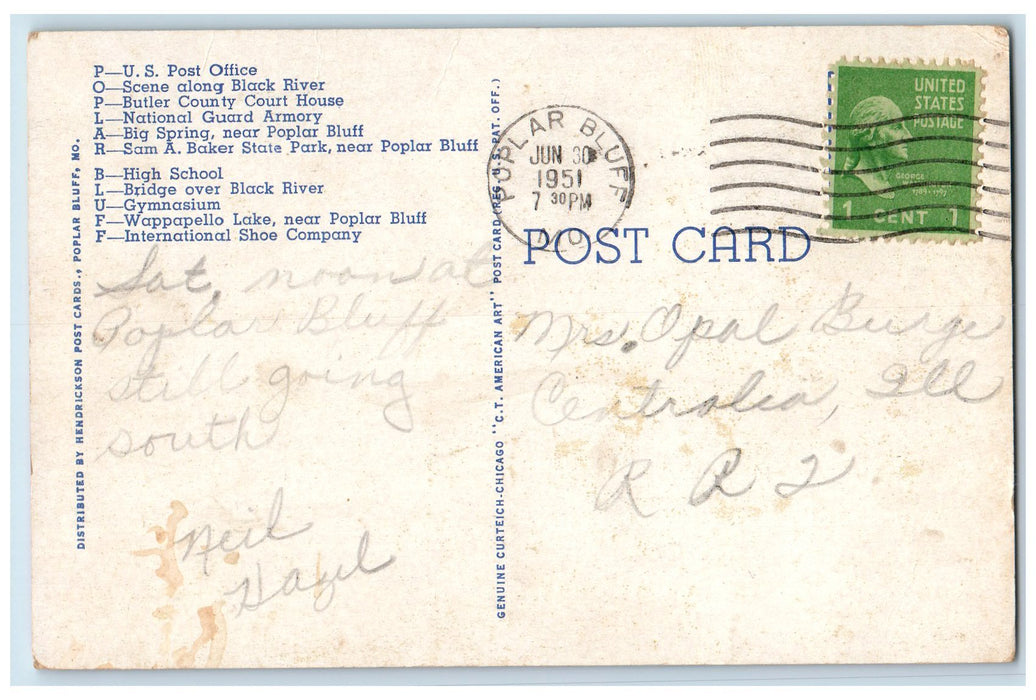 P—U. S. Post Office
O—Scene along Black River
P—Butler County Court House
L—National Guard Armory
A—Big Spring, near Poplar Bluff
R—Sam A. Baker State Park, near Poplar Bluff
B—High School
L—Bridge over Black River
U—Gymnasium
F—Wappapello Lake, near Poplar Bluff
F—International Shoe Company
Sat, noon at
Poplar Bluff
still going
south
Neil
Hazel
DISTRIBUTED BY HENDRICKSON POST CARDS., POPLAR BLUFF, MO.
GENUINE CURTEICH-CHICAGO "C.T. AMERICAN ART" POST CARD (REG. U.S. PAT. OFF.)
POPLAR BLUFF
JUN 30
1951
7 30 PM
MO.
UNITED
STATES
POSTAGE
GEORGE
1 CENT 1
POST CARD
Mrs. Opal Burge
Centralia, Ill
R R 2